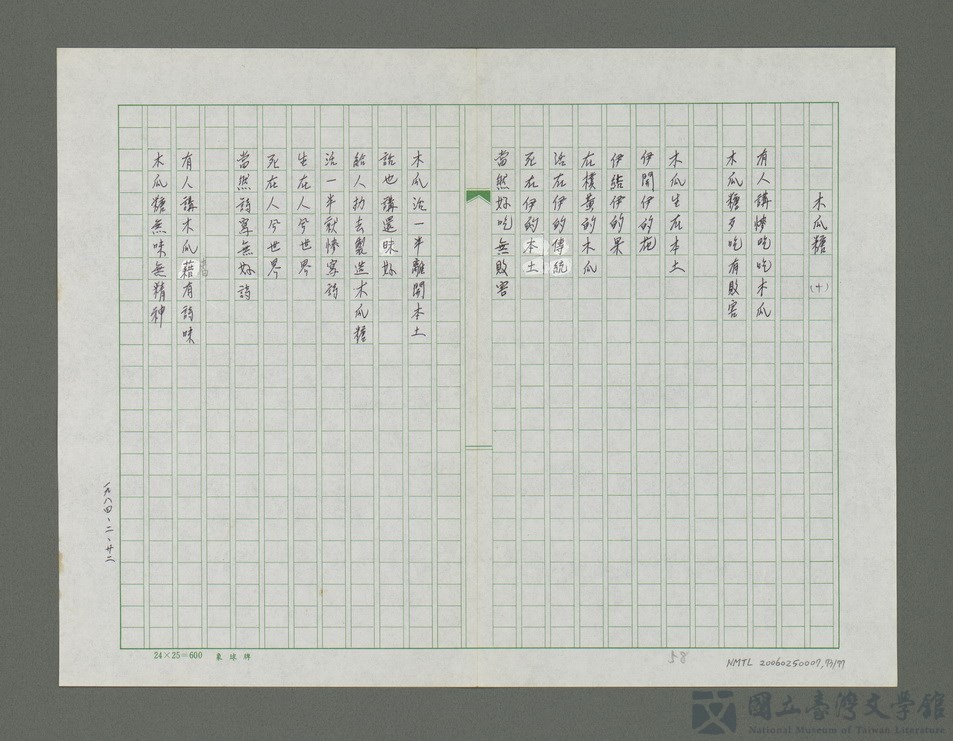 木瓜糖 (十)
有人講慘吃吃木瓜
木瓜糖歹吃有敗害
木瓜生在本土
伊開伊的花
伊結伊的果
在樸黃的木瓜
活在伊的傳統
死在伊的本土
當然好吃無敗害
木瓜活一半離開本土
話也講還昧好
給人抝去製造木瓜糖
活一半就慘寫詩
生在人兮世界
死在人兮世界
當然詩寫無好詩
有人講木瓜藉有詩味
木瓜糖無味無精神
一九八四、二、廿二
24×25=600
58
NMTL 20060250007,73/77
國立臺灣文學館
National Museum of Taiwan Literature